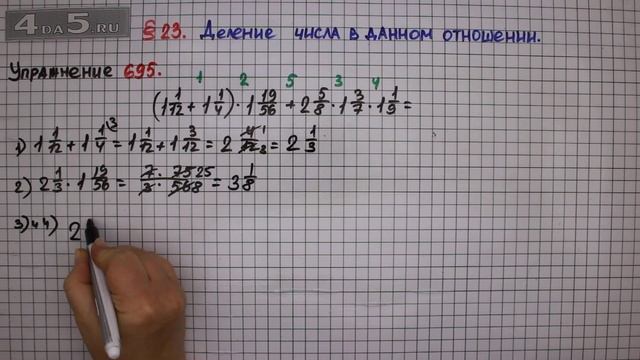 4DA5.RU
§ 23. Деление числа в данном отношении.
Упражнение 695.
1 2 5 3 4
(1 1/12 + 1 1/4) · 1 19/56 + 2 5/8 · 1 3/7 · 1 1/9 =
1) 1 1/12 + 1 1/4 3 = 1 1/12 + 1 3/12 = 2 4/12 1 3 = 2 1/3
2) 2 1/3 · 1 19/56 = 7 · 75 25 / 3 · 56 8 = 3 1/8
3) и 4) 2